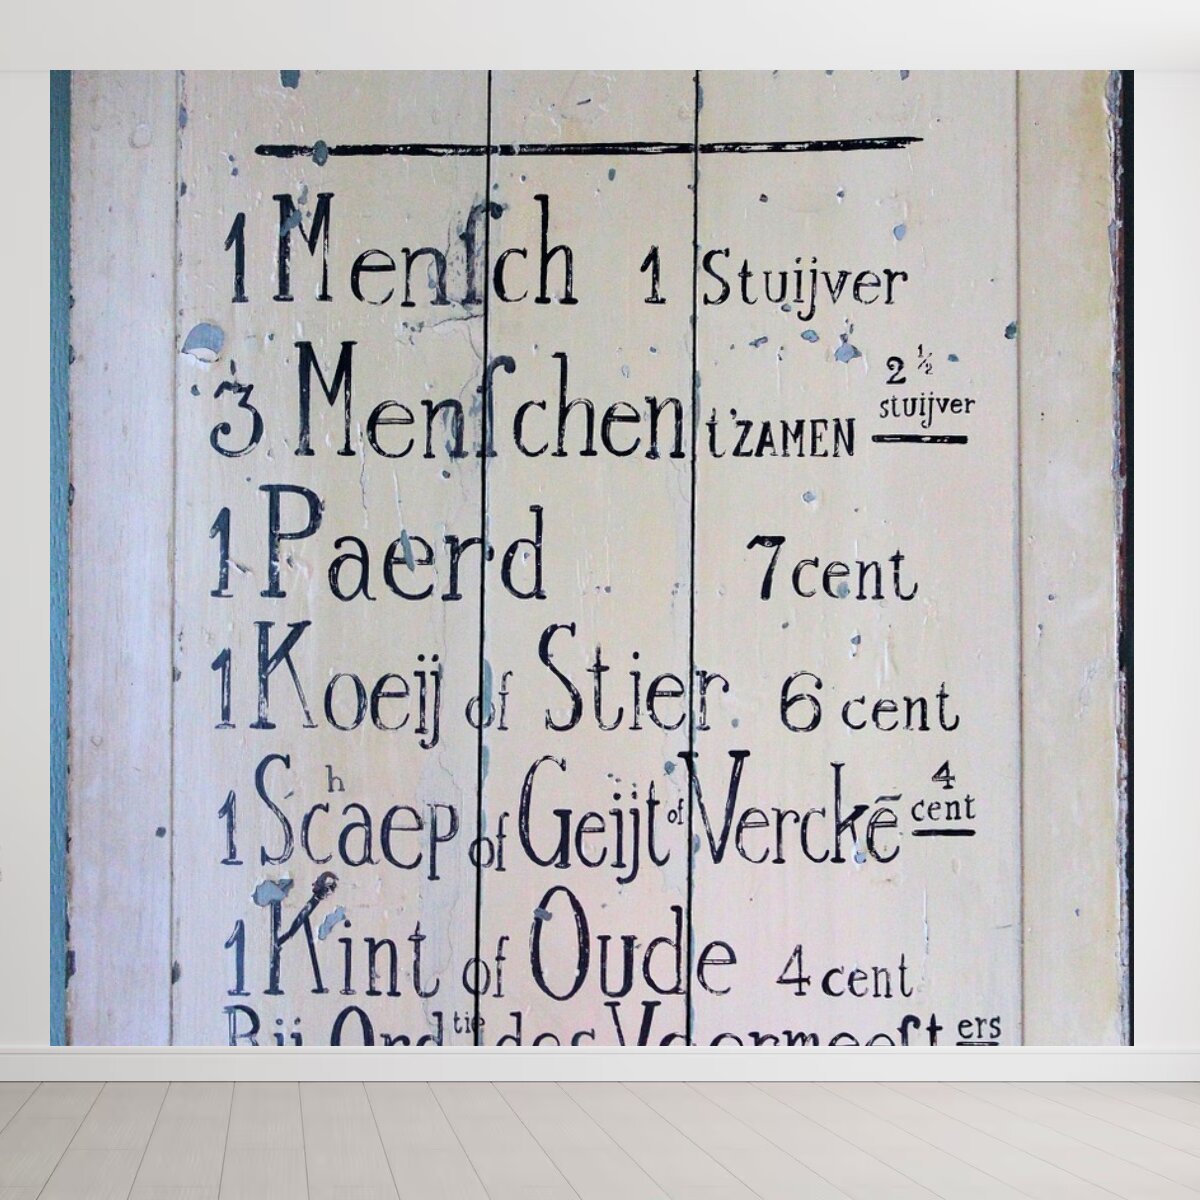 1 Menſch 1 Stuijver
3 Menſchen t'ZAMEN 2 ½ stuijver
1 Paerd 7 cent
1 Koeij of Stier 6 cent
1 Schaep of Geijt of Verckē 4 cent
1 Kint of Oude 4 cent
Bij Ordtie des Voormeeſters